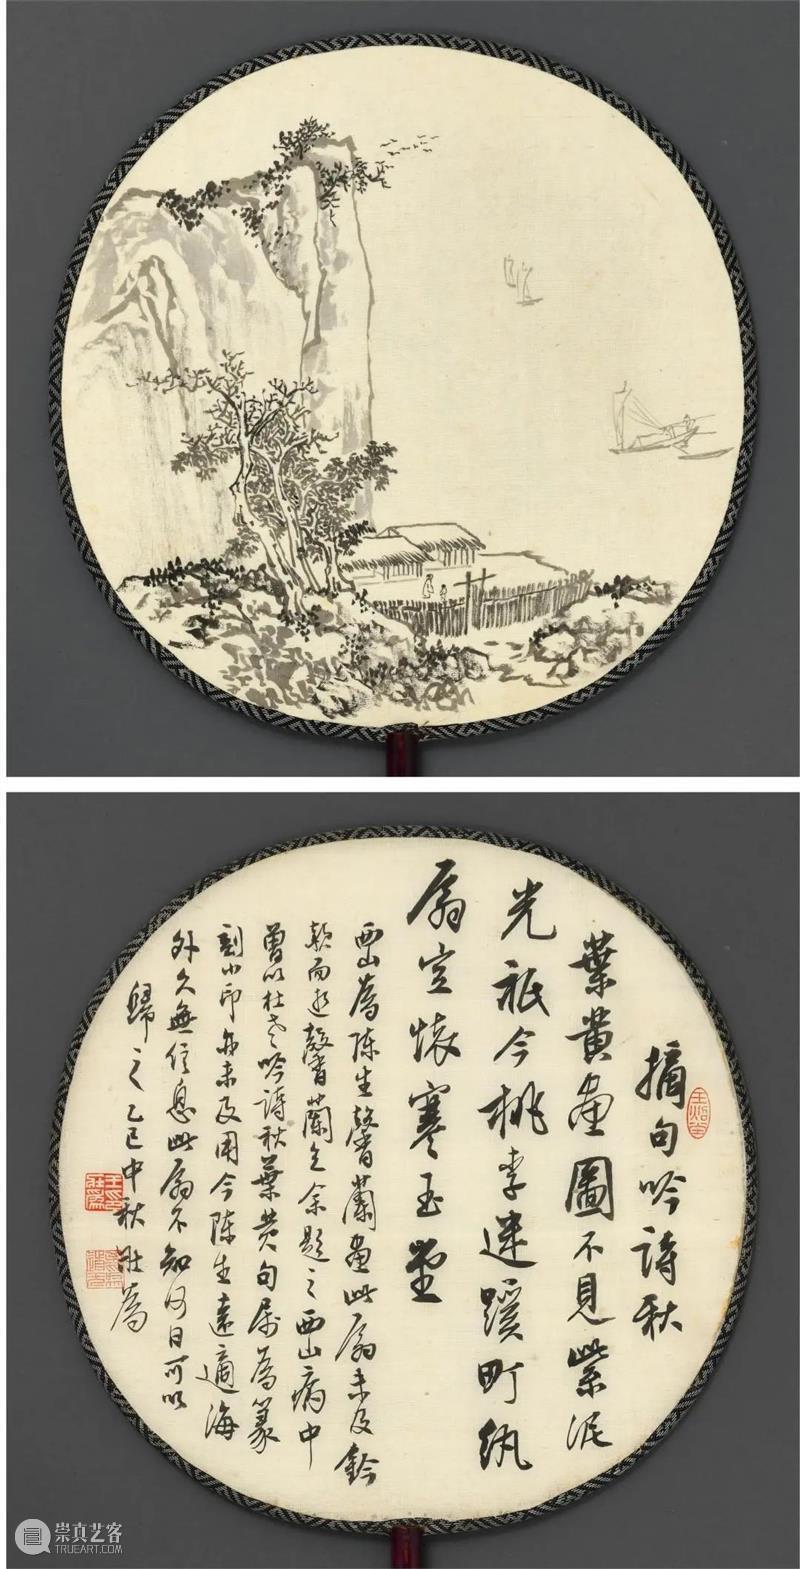 摘句吟詩秋
葉黃畫圖不見紫泥
光祇今桃李迷蹊町紈
扇空懷寒玉堂
西山為陳生馨蘭畫此扇未及鈐
款而逝馨蘭乞余題之西山病中
曾以杜老吟詩秋葉黃句屬為篆
刻小印亦未及用今陳生遠適海
外久無信息此扇不知何日可以
歸之乙巳中秋壯為
崇真艺客
TRUEART.COM